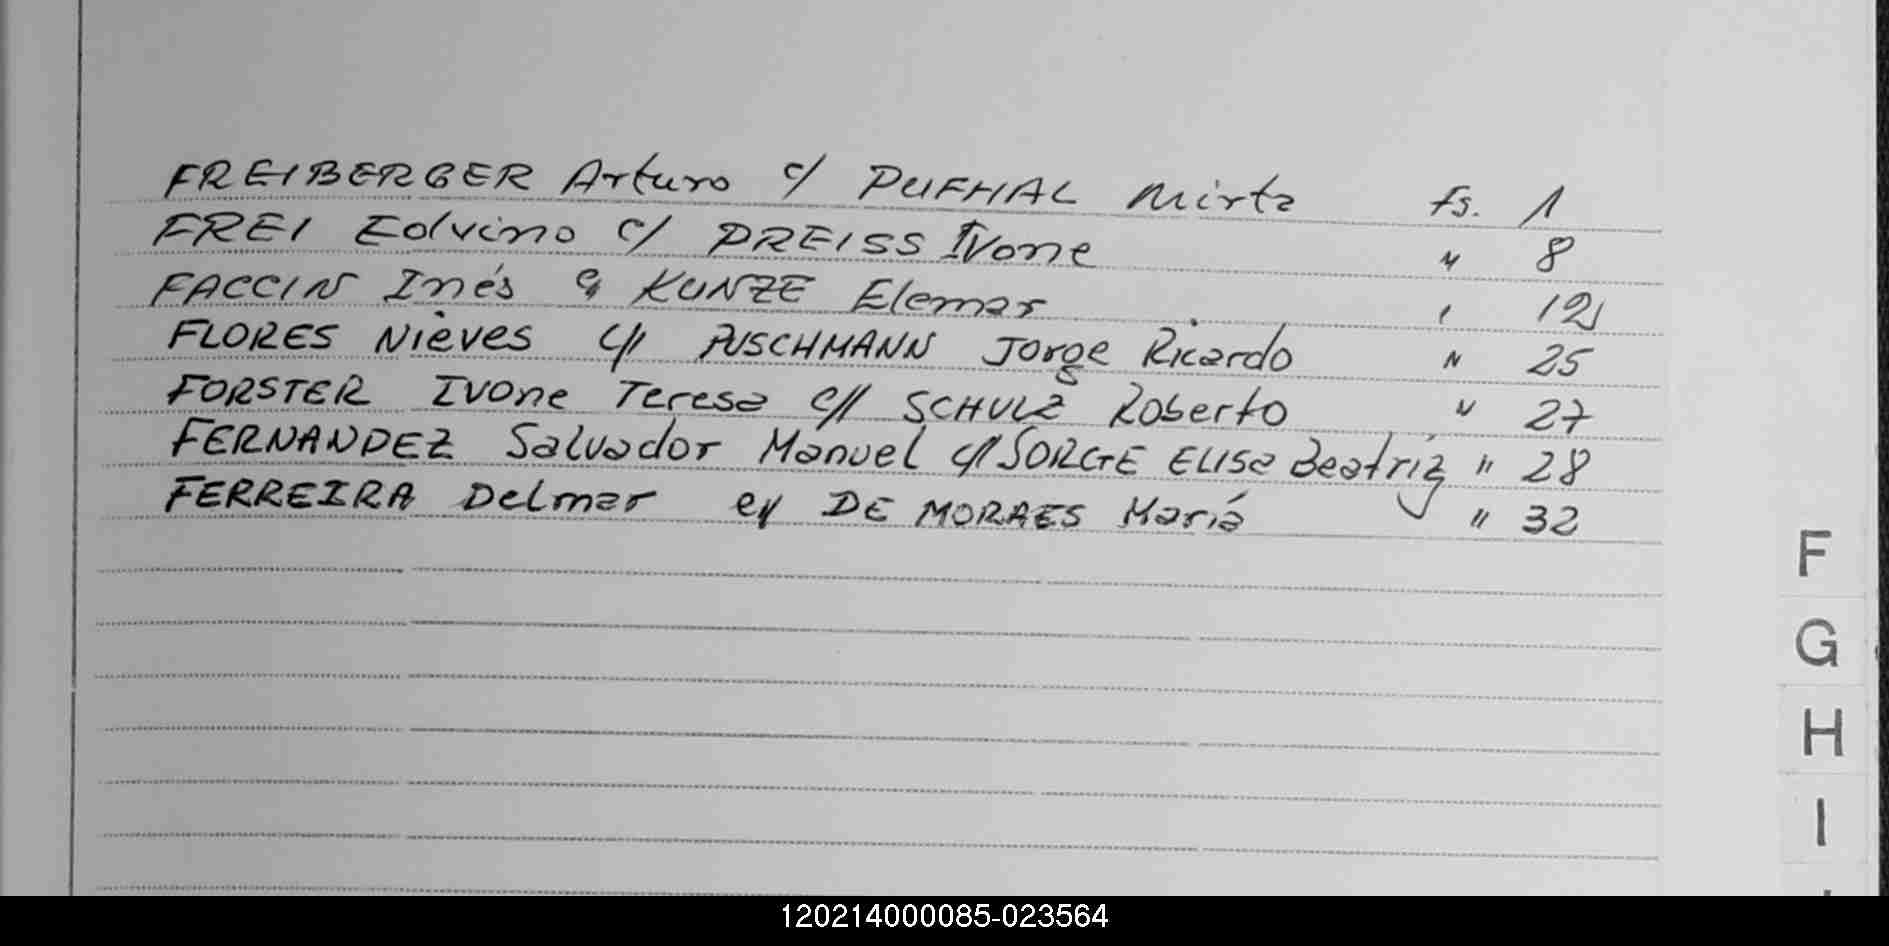 FREIBERGER Arturo c/ PUFHAL Mirta Fs. 1
FREI Edvino c/ PREISS Ivone " 8
FACCIN Inés c/ KUNZE Elemar " 12
FLORES Nieves c/ PUSCHMANN Jorge Ricardo " 25
FORSTER Ivone Teresa c/ SCHULZ Roberto " 27
FERNANDEZ Salvador Manuel c/ SORGE Elisa Beatriz " 28
FERREIRA Delmar c/ DE MORAES María " 32
F
G
H
I
120214000085-023564